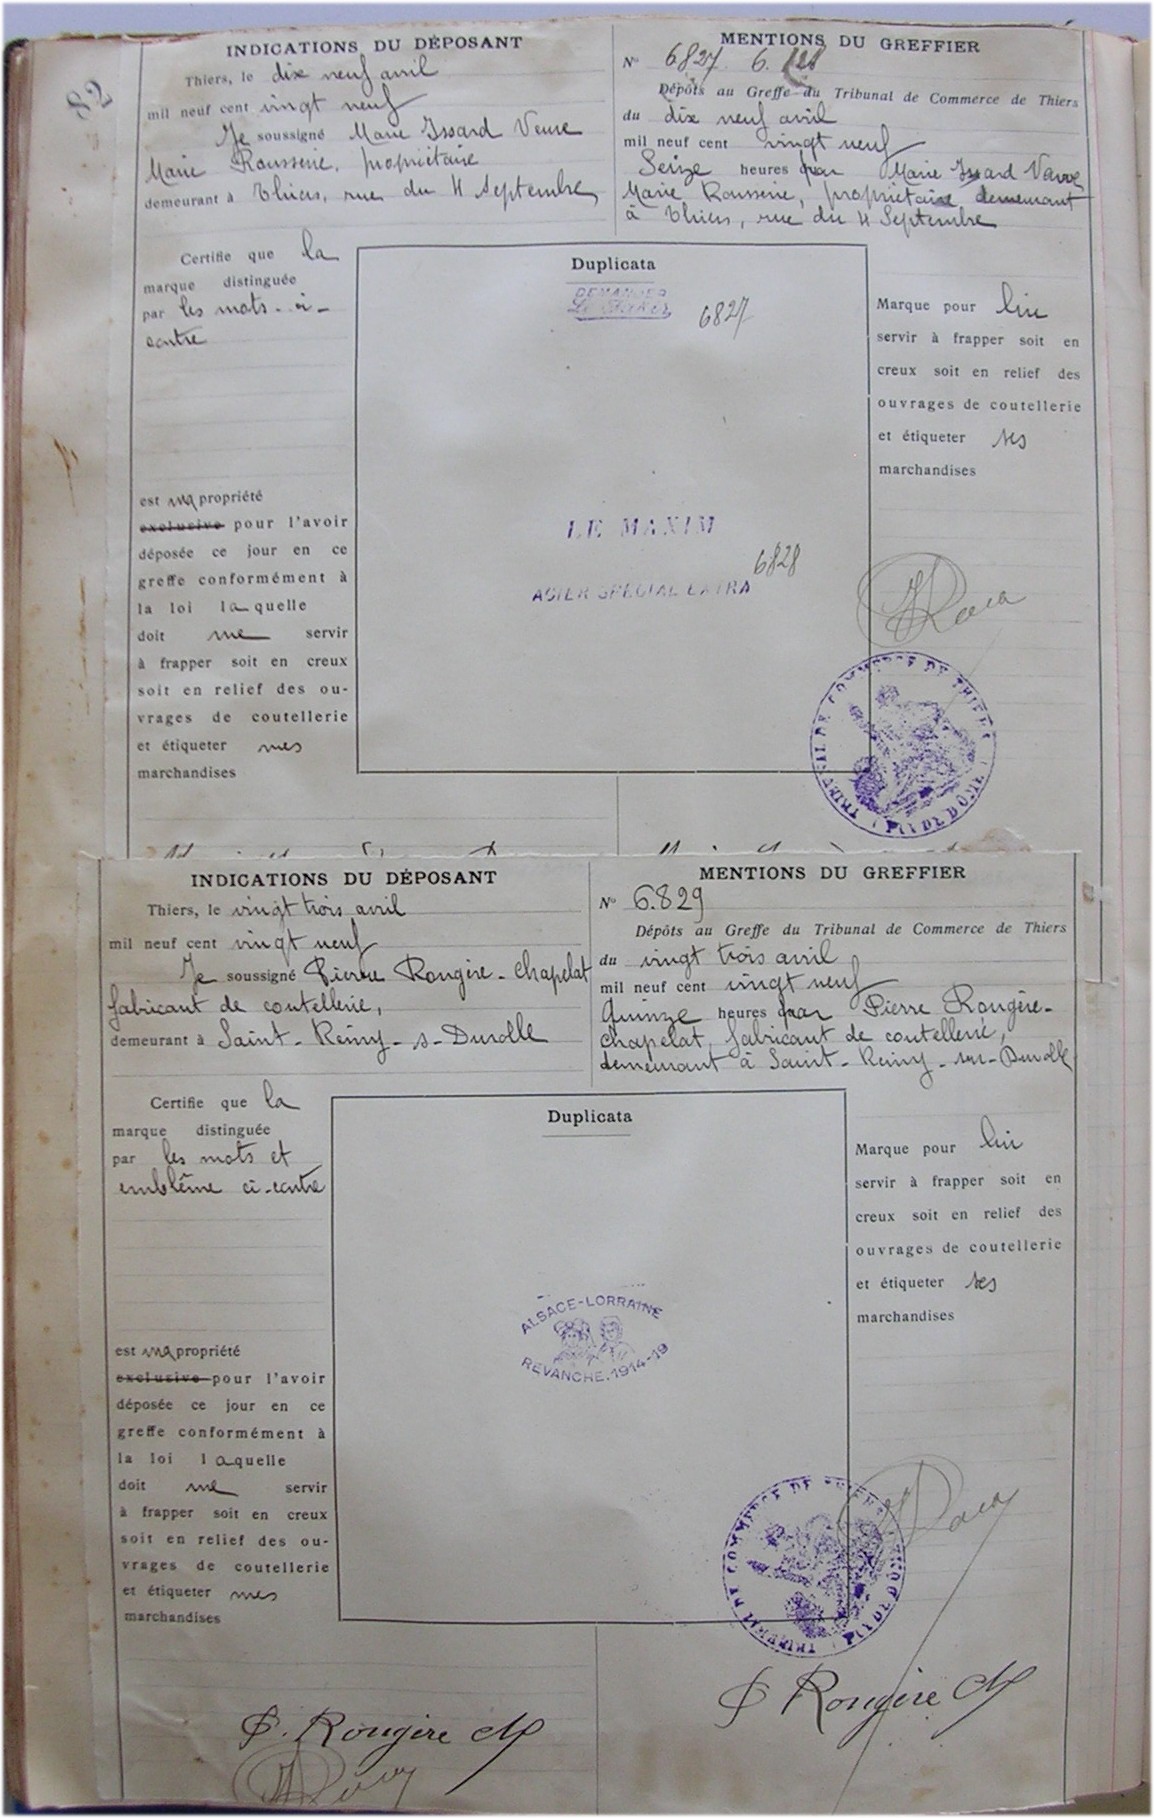 82
INDICATIONS DU DÉPOSANT
Thiers, le dix neuf avril
mil neuf cent vingt neuf
Je soussigné Marie Issard Veuve
Marie Rousserie, propriétaire
demeurant à Thiers, rue du 4 Septembre
MENTIONS DU GREFFIER
N° 6827 6.
Dépôts au Greffe du Tribunal de Commerce de Thiers
du dix neuf avril
mil neuf cent vingt neuf
Seize heures par Marie Issard Veuve
Marie Rousserie, propriétaire demeurant
à Thiers, rue du 4 Septembre
Certifie que la
marque distinguée
par les mots ci-
contre
est ma propriété
exclusive pour l'avoir
déposée ce jour en ce
greffe conformément à
la loi laquelle
doit me servir
à frapper soit en creux
soit en relief des ou-
vrages de coutellerie
et étiqueter mes
marchandises
Duplicata
DEMANDER
6827
LE MAXIM
6828
ACIER SPECIAL EXTRA
Marque pour lui
servir à frapper soit en
creux soit en relief des
ouvrages de coutellerie
et étiqueter ses
marchandises
TRIBUNAL DE COMMERCE DE THIERS
PUY DE DOME
INDICATIONS DU DÉPOSANT
Thiers, le vingt trois avril
mil neuf cent vingt neuf
Je soussigné Pierre Rougère-Chapelat
fabricant de coutellerie,
demeurant à Saint-Remy-s-Durolle
MENTIONS DU GREFFIER
N° 6.829
Dépôts au Greffe du Tribunal de Commerce de Thiers
du vingt trois avril
mil neuf cent vingt neuf
Quinze heures par Pierre Rougère-
chapelat, fabricant de coutellerie,
demeurant à Saint-Remy-sur-Durolle
Certifie que la
marque distinguée
par les mots et
emblême ci-contre
est ma propriété
exclusive pour l'avoir
déposée ce jour en ce
greffe conformément à
la loi laquelle
doit me servir
à frapper soit en creux
soit en relief des ou-
vrages de coutellerie
et étiqueter mes
marchandises
Duplicata
ALSACE-LORRAINE
REVANCHE.1914-19
Marque pour lui
servir à frapper soit en
creux soit en relief des
ouvrages de coutellerie
et étiqueter ses
marchandises
TRIBUNAL DE COMMERCE DE THIERS
PUY DE DOME
P. Rougère Ch
P Rougère Ch